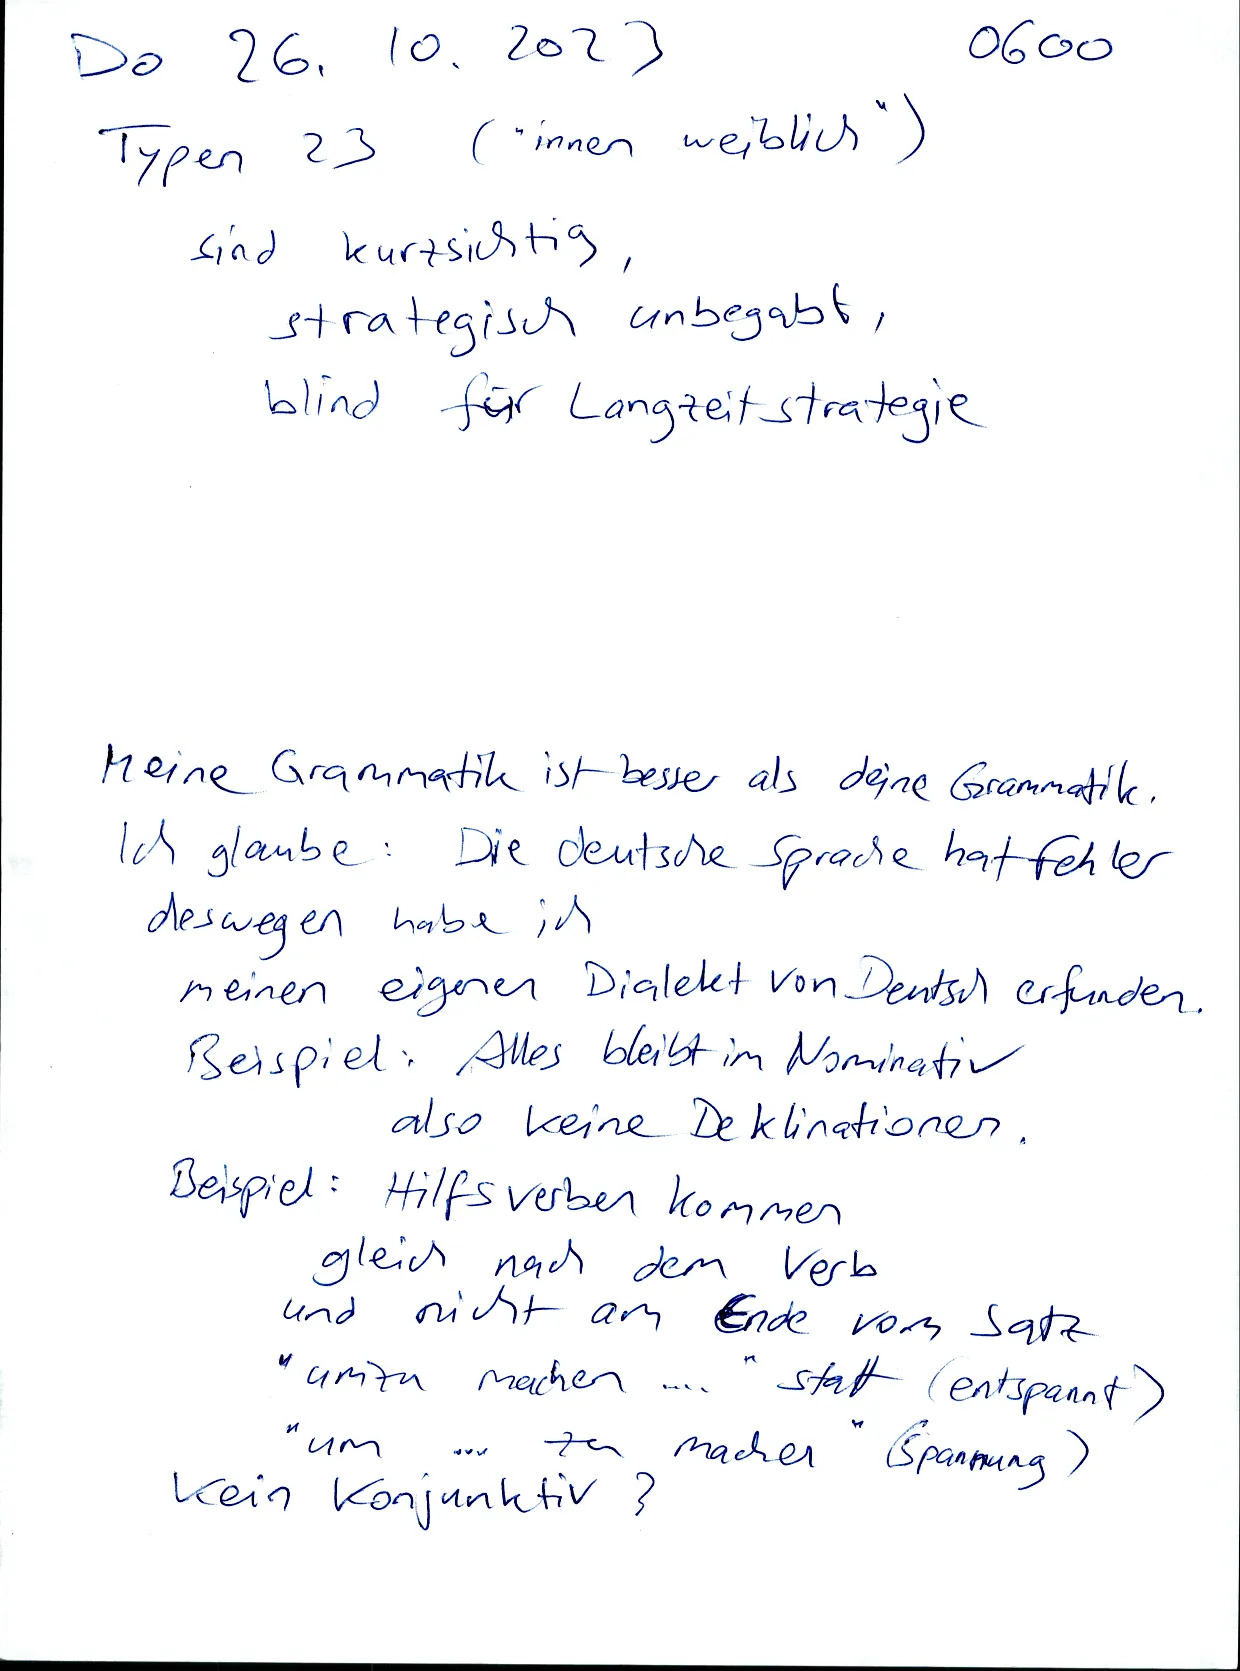 Do 26. 10. 2023 0600
Typen 23 ("innen weiblich")
sind kurzsichtig,
strategisch unbegabt,
blind für Langzeitstrategie
Meine Grammatik ist besser als deine Grammatik.
Ich glaube: Die deutsche Sprache hat Fehler
deswegen habe ich
meinen eigenen Dialekt von Deutsch erfunden.
Beispiel: Alles bleibt im Nominativ
also keine Deklinationen.
Beispiel: Hilfsverben kommen
gleich nach dem Verb
und nicht am Ende vom Satz
"umzu machen ...." statt (entspannt)
"um ... zu machen" (Spannung)
Kein Konjunktiv ?